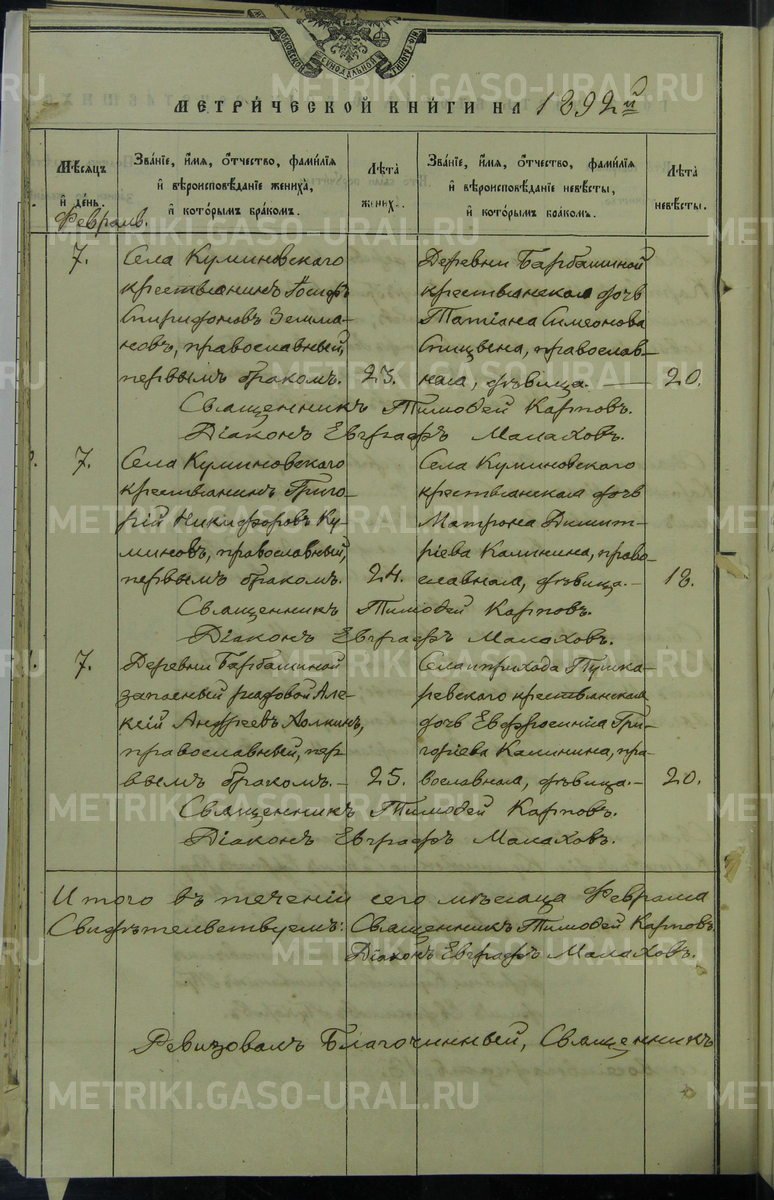 МЕТРИЧЕСКОЙ КНИГИ НА 1892й
Мѣсяцъ и день.
Званіе, имя, отчество, фамилія и вѣроисповѣданіе жениха, и которымъ бракомъ.
Лѣта жениха.
Званіе, имя, отчество, фамилія и вѣроисповѣданіе невѣсты, и которымъ бракомъ.
Лѣта невѣсты.
Февраль.
7.
Села Куминовскаго
крестьянинъ Іосифъ
Спиридоновъ Земля-
новъ, православный,
первымъ бракомъ.
23.
Деревни Барбашиной
крестьянская дочь
Татіана Симеонова
Спицына, православ-
ная, дѣвица.
20.
Священникъ Тимофей Карповъ.
Діаконъ Евграфъ Малаховъ.
7.
Села Куминовскаго
крестьянинъ Григо-
рій Никифоровъ Ку-
миновъ, православный,
первымъ бракомъ.
24.
Села Куминовскаго
крестьянская дочь
Матрона Димит-
ріева Калинина, право-
славная, дѣвица.-
18.
Священникъ Тимофей Карповъ.
Діаконъ Евграфъ Малаховъ.
7.
Деревни Барбашиной
запасный рядовой Але-
ксій Андреевъ Холкинъ,
православный, пер-
вымъ бракомъ.-
25.
Села и прихода Пушка-
ревскаго крестьянская
дочь Евфросинія Гри-
горіева Калинина, пра-
вославная, дѣвица.-
20.
Священникъ Тимофей Карповъ.
Діаконъ Евграфъ Малаховъ.
Итого въ теченіи сего мѣсяца Февраля
Свидѣтельствуемъ: Священникъ Тимофей Карповъ
Діаконъ Евграфъ Малаховъ.
Ревизовалъ Благочинный, Священникъ
METRIKI.GASO-URAL.RU